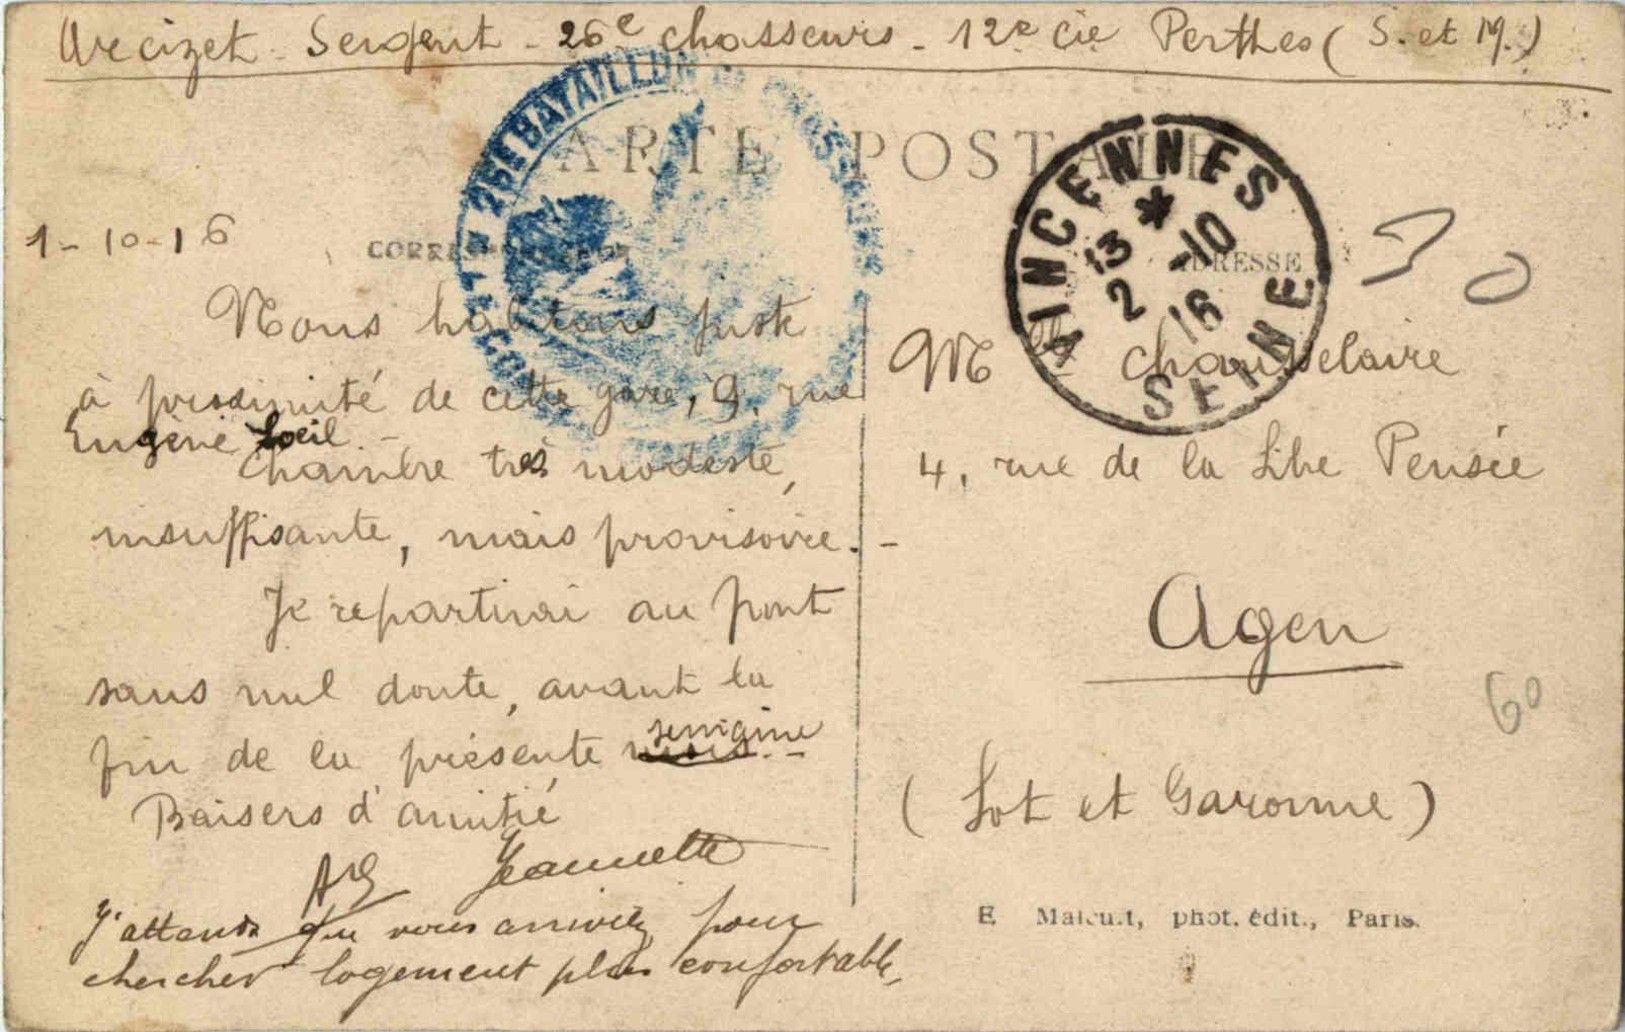 Arcizet - Sergent - 26e chasseurs - 12e Cie Perthes (S. et M.)
26E BATAILLON DE CHASSEURS
CARTE POSTALE
VINCENNES
13 * 2 -10 16
SEINE
1-10-16
CORRESPONDANCE
ADRESSE
30
Nous habitons juste
à proximité de cette gare, 9, rue
Eugénie Loeil. -
Chambre très modeste,
insuffisante, mais provisoire. -
Je repartirai au front
sans nul doute, avant la
fin de la présente mois semaine. -
Baisers d'amitié
Jeannette
J'attends que vous arriviez pour
chercher logement plus confortable.
Mlle Chausselaire
4, rue de la Libre Pensée
Agen
60
(Lot et Garonne)
E Malcuit, phot. édit., Paris.